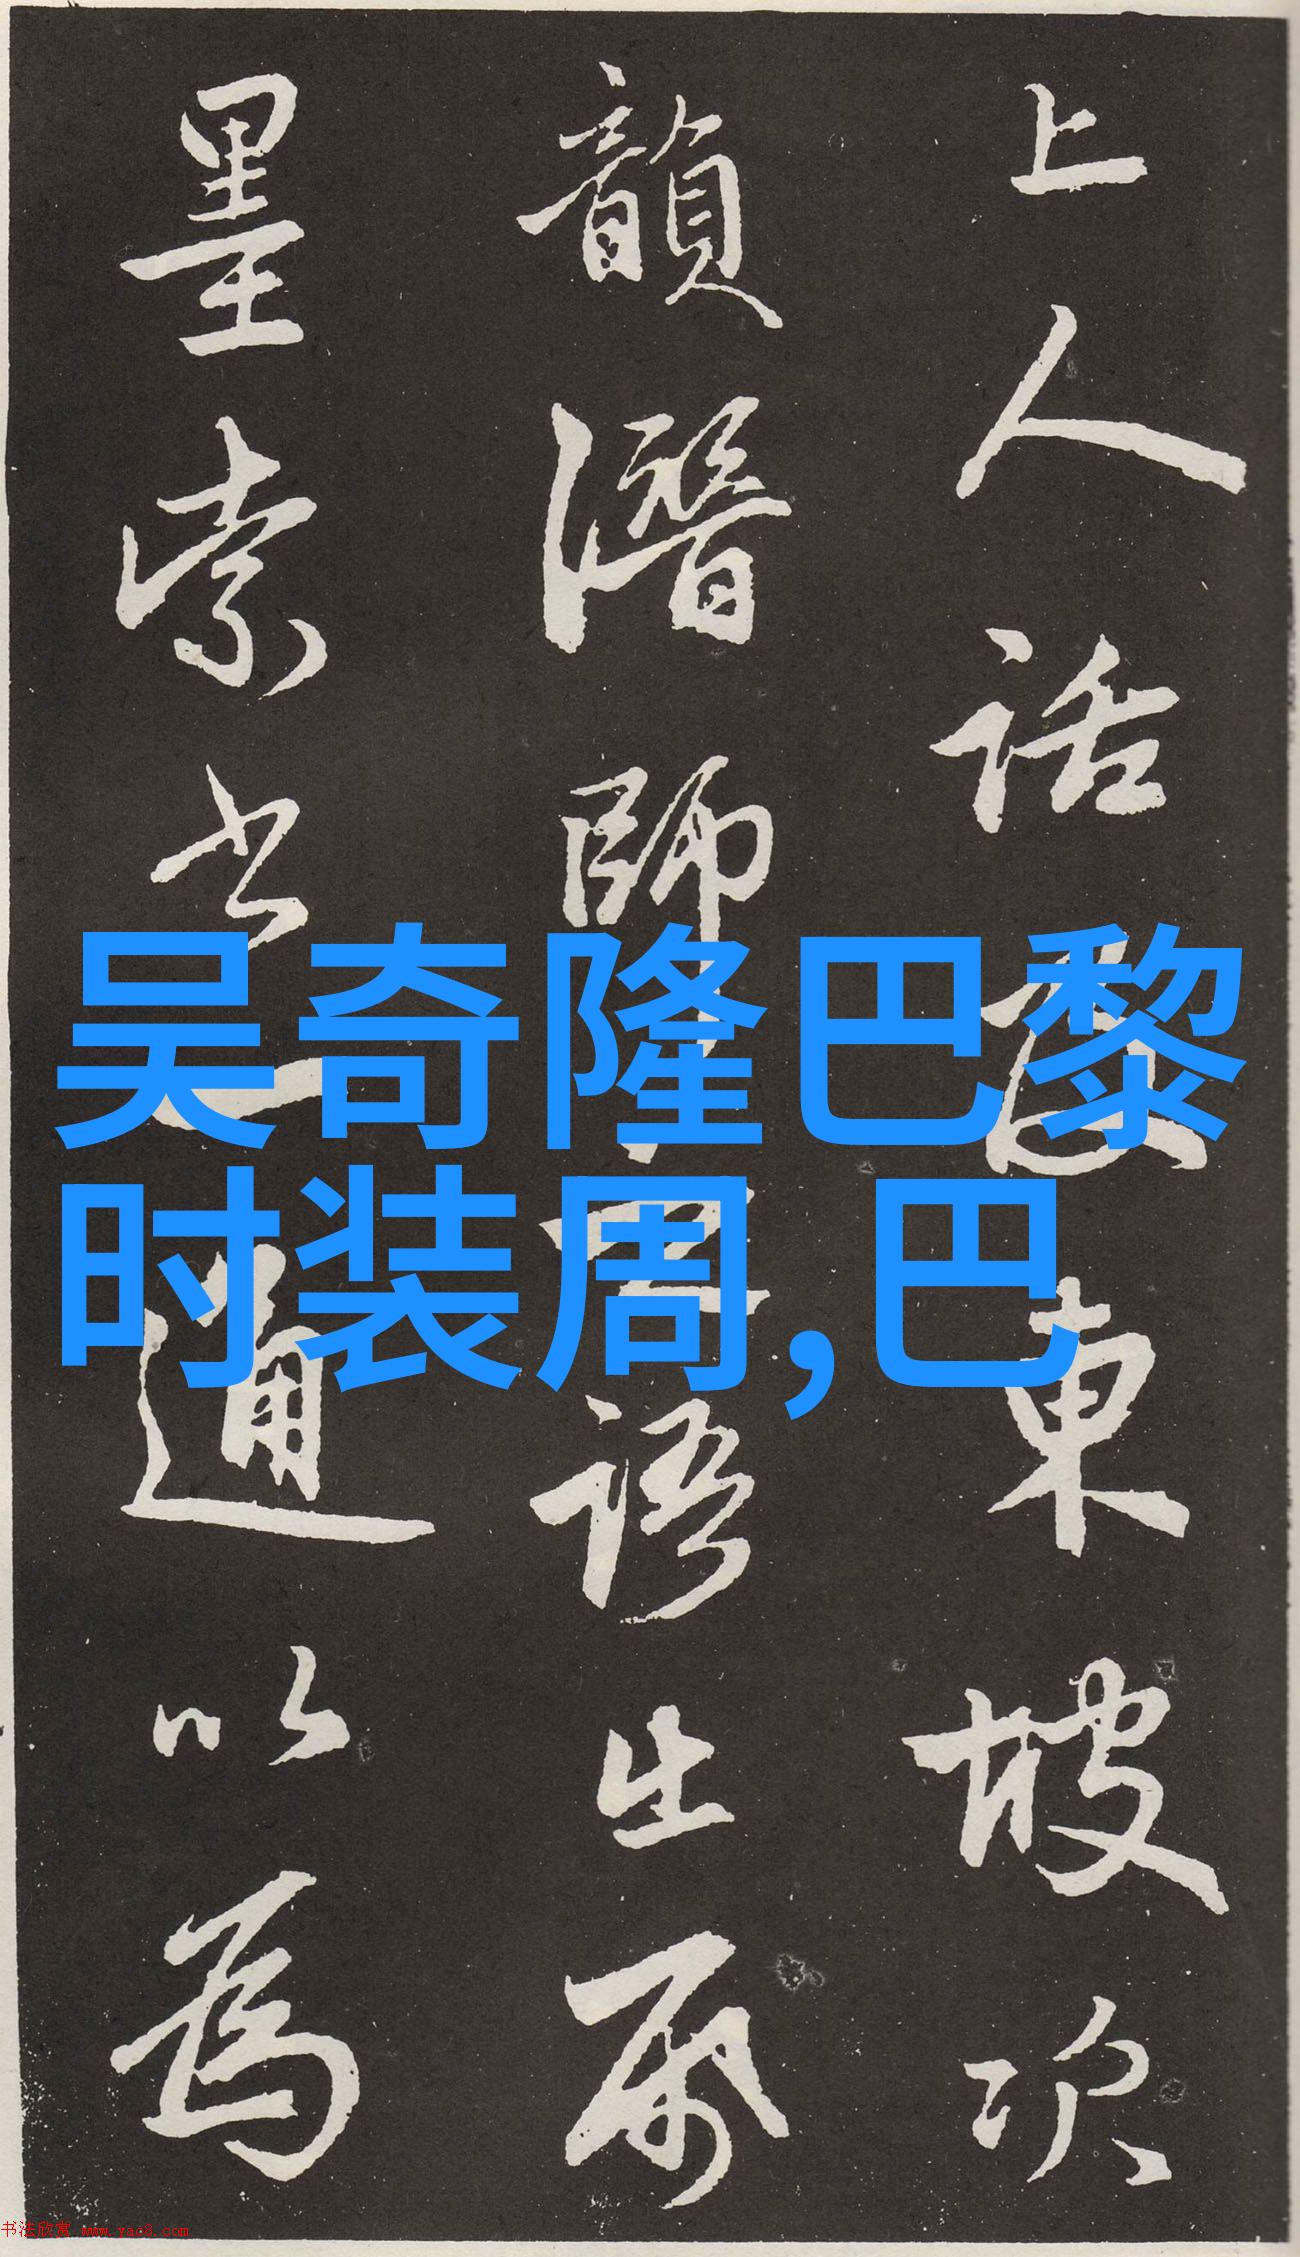 上人話東坡次
韻潛師語
墨索書一通以為
吴奇隆巴黎
时装周,巴
书法欣赏 www.yac8.com